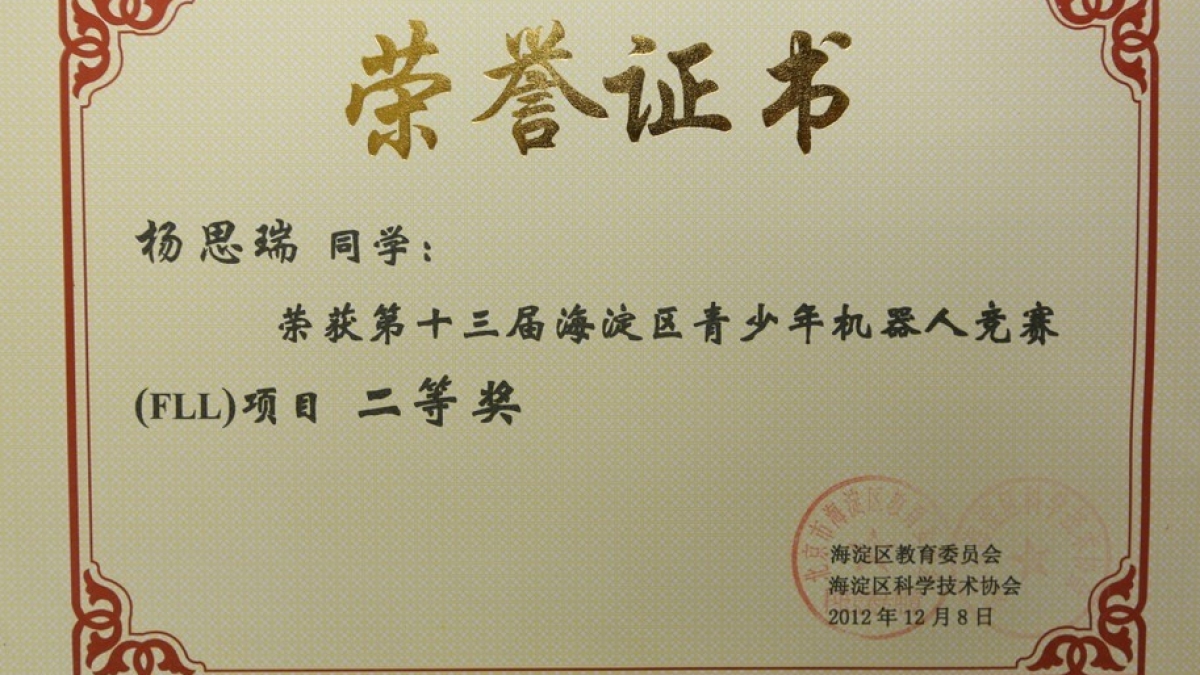 荣誉证书
杨思瑞 同学：
荣获第十三届海淀区青少年机器人竞赛
(FLL)项目 二等奖
北京市海淀区教育
海淀区教育委员会
海淀区科学技术协会
2012年12月8日